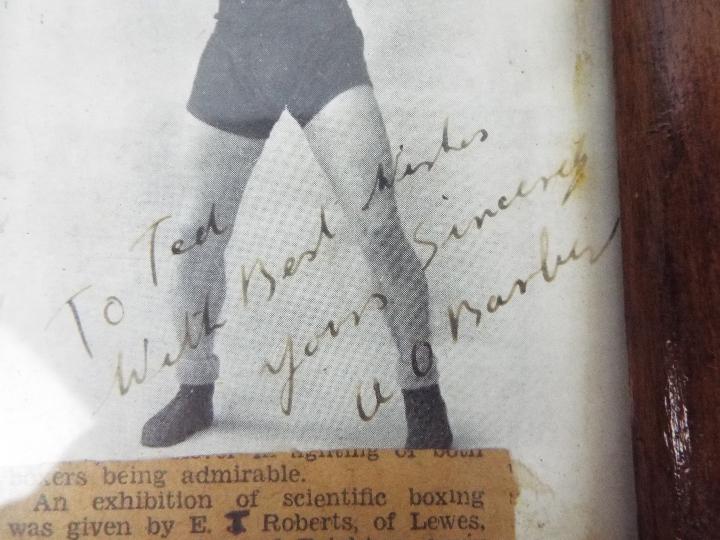 To Ted
With Best Wishes
Yours Sincerely
fighting of both
boxers being admirable.
An exhibition of scientific boxing
was given by E. T Roberts, of Lewes,